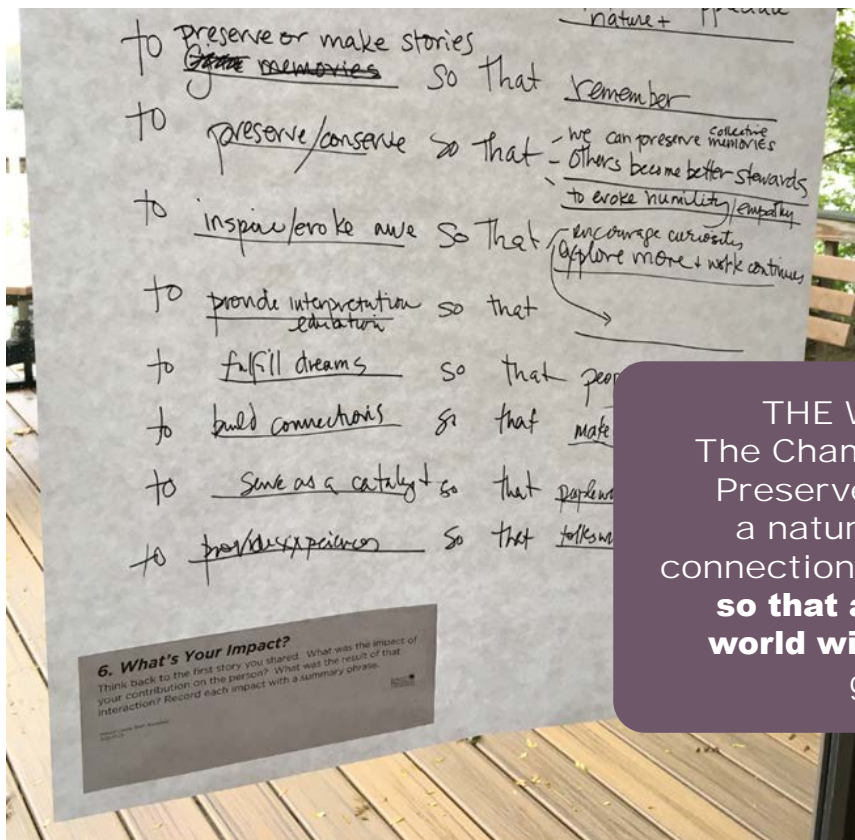 nature +
to preserve or make stories
memories so that remember
to preserve/conserve so that - we can preserve collective memories
- others become better stewards
- to evoke humility/empathy
to inspire/evoke awe so that - encourage curiosity
explore more + work continues
to provide interpretation so that
education
to fulfill dreams so that
to build connections so that make
to serve as a catalyst so that
to provide experiences so that
6. What's Your Impact?
Think back to the first story you shared. What was the impact of
your contribution on the person? What was the result of that
interaction? Record each impact with a summary phrase.
THE
The Chan
Preserve
a natur
connection
so that a
world wi
g